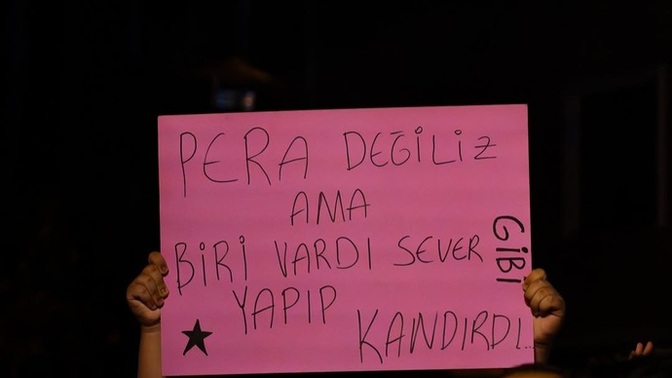 PERA DEĞİLİZ
AMA
BİRİ VARDI SEVER GİBİ
YAPIP
KANDIRDI...